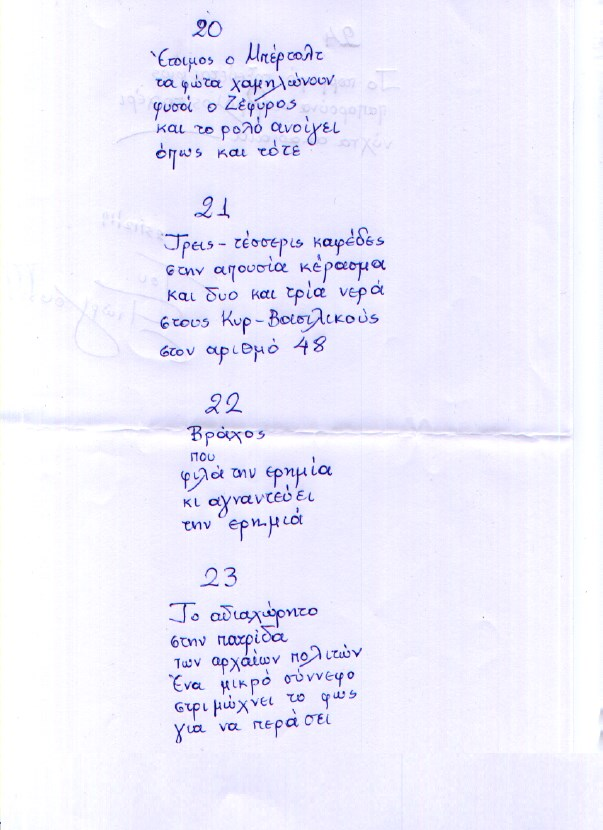 20
Έτοιμος ο Μπέρτολτ
τα φώτα χαμηλώνουν
φυσά ο Ζέφυρος
και το ρολό ανοίγει
όπως και τότε
21
Τρεις - τέσσερις καφέδες
στην απουσία κέρασμα
και δυο και τρία νερά
στους Κυρ - Βασιλικούς
στον αριθμό 48
22
Βράχος
που
φιλά την ερημία
κι αγναντεύει
την ερημιά
23
Το αδιαχώρητο
στην πατρίδα
των αρχαίων πολιτών
Ένα μικρό σύννεφο
στριμώχνει το φως
για να περάσει